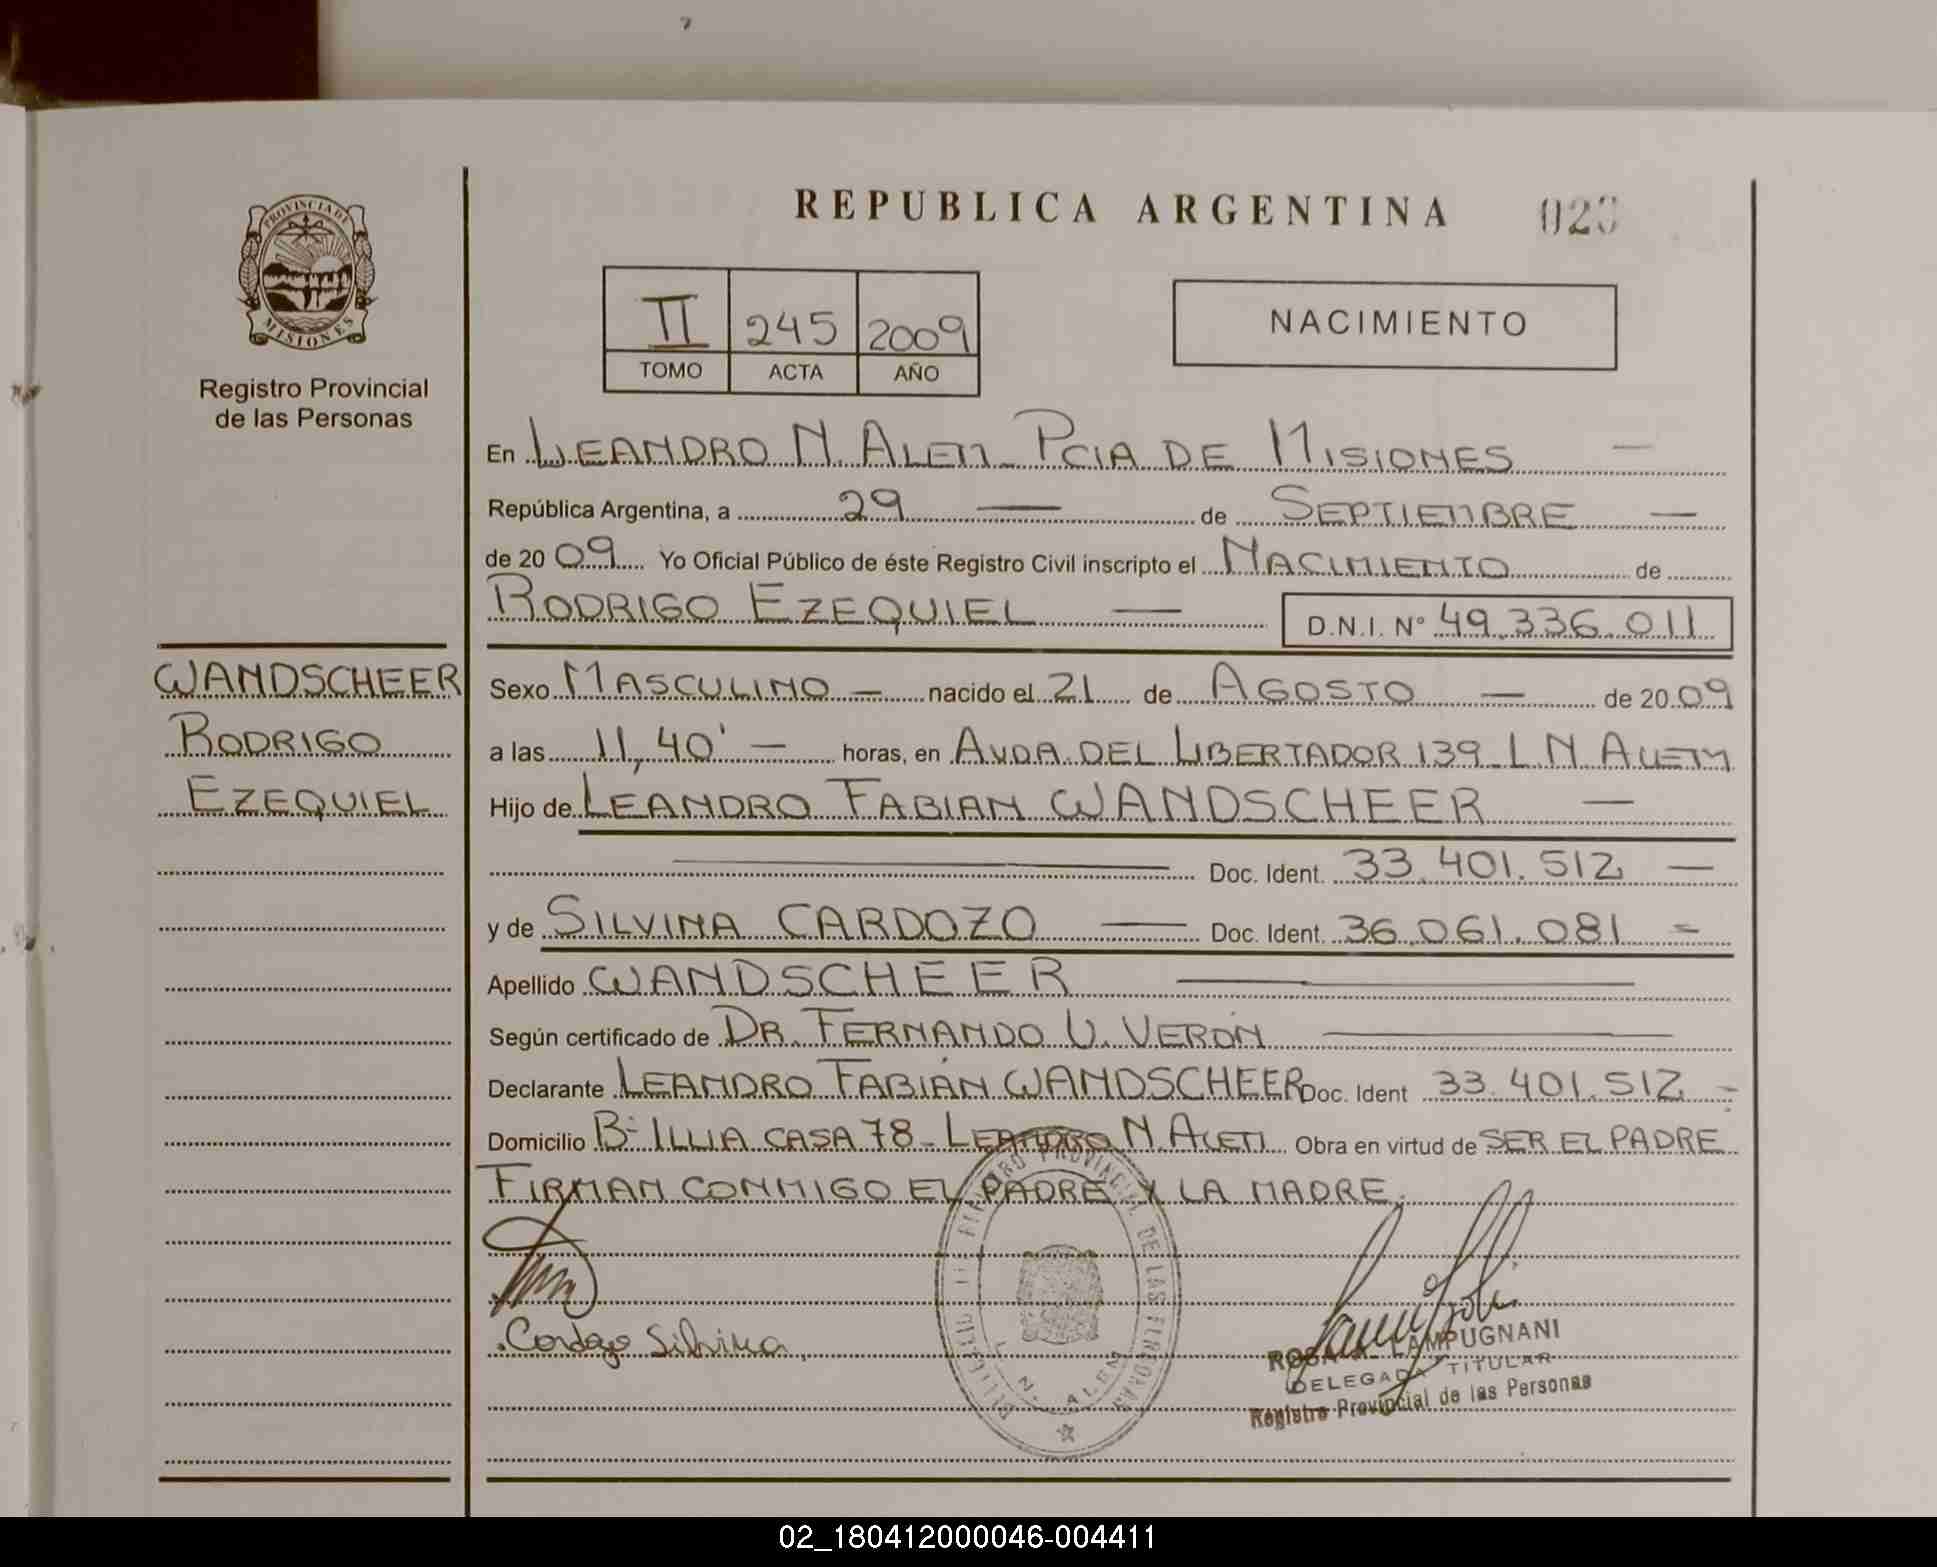 REPUBLICA ARGENTINA
PROVINCIA DE
MISIONES
Registro Provincial
de las Personas
II 245 2009
TOMO ACTA AÑO
NACIMIENTO
En LEANDRO N. ALEM PCIA DE MISIONES
República Argentina, a 29 de SEPTIEMBRE
de 20 09 Yo Oficial Público de éste Registro Civil inscripto el NACIMIENTO de
RODRIGO EZEQUIEL D.N.I. N° 49.336.011
WANDSCHEER
RODRIGO
EZEQUIEL
Sexo MASCULINO nacido el 21 de AGOSTO de 20 09
a las 11,40' horas, en AVDA. DEL LIBERTADOR 139 L N ALEM
Hijo de LEANDRO FABIAN WANDSCHEER
Doc. Ident. 33.401.512
y de SILVINA CARDOZO Doc. Ident. 36.061.081
Apellido WANDSCHEER
Según certificado de DR. FERNANDO U. VERÓN
Declarante LEANDRO FABIÁN WANDSCHEER Doc. Ident 33.401.512
Domicilio B° ILLIA CASA 78 - LEANDRO N. ALEM Obra en virtud de SER EL PADRE
FIRMAN CONMIGO EL PADRE Y LA MADRE.
PROVINCIAL DE LAS PERSONAS
L. N. ALEM
Cardozo Silvina
LAMPUGNANI
DELEGADA TITULAR
Registro Provincial de las Personas
02_180412000046-004411